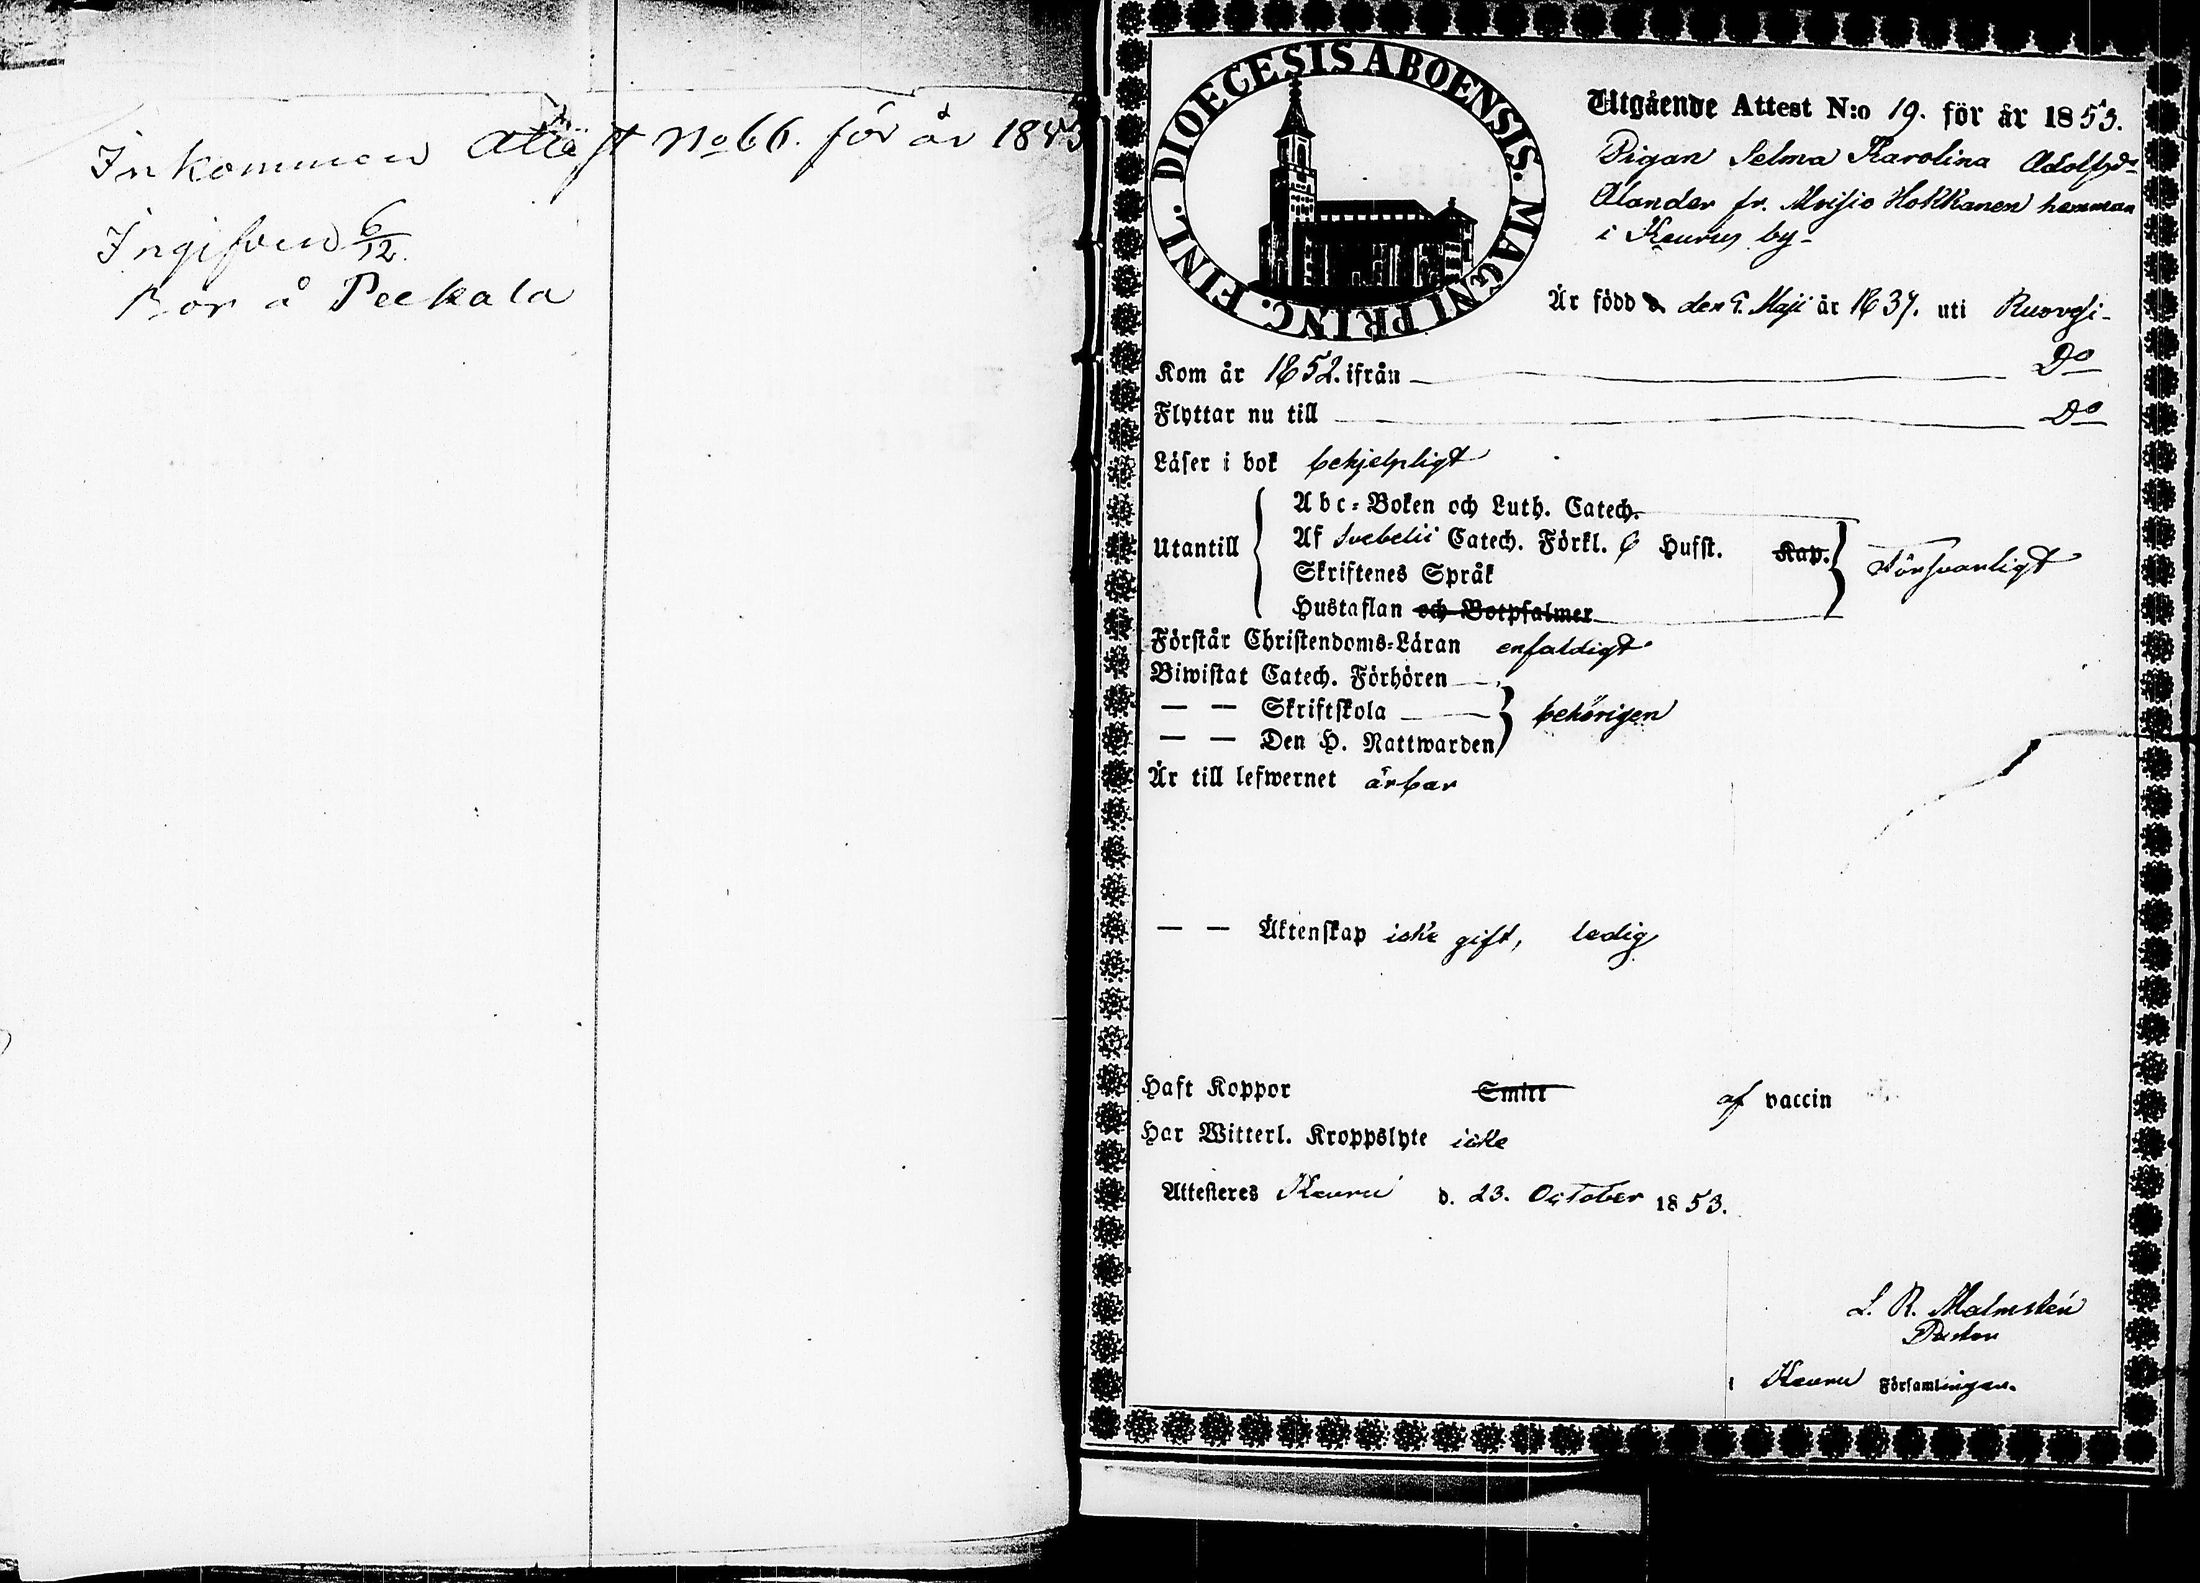 Inkommen Attest No 66. för år 1853
Ingifven 6/12.
Bor å Peekala
DIOECESIS ABOENSIS. MAGNI PRINC. FINL.
Utgående Attest N:o 19. för år 1853.
Pigan Selma Karolina Adolfsdr
Ålander fr. Hokkanen hemman
i Keuru by
Är född den 9. Maji år 1837. uti Ruovesi
Kom år 1852. ifrån Do
Flyttar nu till Do
Läser i bok behjelpligt
Utantill
Abc-Boken och Luth. Catech.
Af Svebelii Catech. Förkl. 6 Hufst. Kap.
Skriftenes Språk
Hustaflan och Botpsalmer
Försvarligt
Förstår Christendoms-Läran enfaldigt
Biwistat Catech. Förhören
— — Skriftskola
— — Den H. Nattwarden
behörigen
Är till lefwernet ärbar
— — Äktenskap icke gift, ledig
Haft Koppor Smitt af vaccin
Har Witterl. Kroppslyte icke
Attesteres Keuru d. 23. October 1853.
L. R. Malmstén
Pastor
Keuru Församlingen.